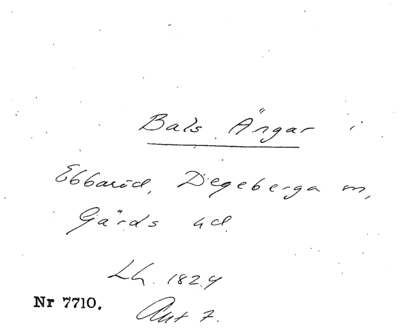 Bals Ängar i
Ebbaröd, Degeberga sn,
Gärds hd.
Lh. 1824
Nr 7710.
Akt 7.